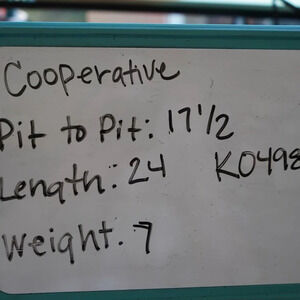 Cooperative
Pit to Pit: 17 1/2
Length: 24 K0498
Weight. 7